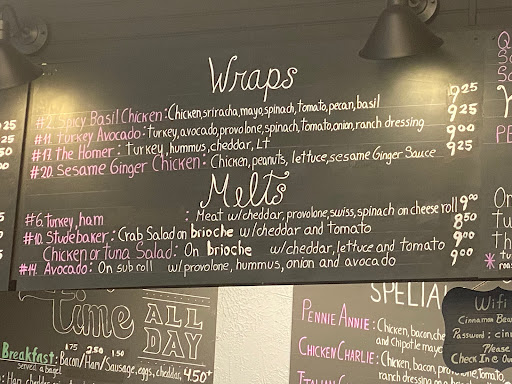 Wraps
#2. Spicy Basil Chicken: Chicken, sriracha, mayo, spinach, tomato, pecan, basil 9.25
#11. Turkey Avocado: turkey, avocado, provolone, spinach, tomato, onion, ranch dressing 9.25
#17. The Homer: turkey, hummus, cheddar, LT 9.00
#20. Sesame Ginger Chicken: Chicken, peanuts, lettuce, sesame Ginger Sauce 9.25
Melts
#6. turkey, ham : Meat w/cheddar, provolone, swiss, spinach on cheese roll 9.00
#10. Studebaker: Crab Salad on brioche w/cheddar and tomato 8.50
Chicken or tuna Salad: On brioche w/cheddar, lettuce and tomato 9.00
#14. Avocado: On sub roll w/provolone, hummus, onion and avocado 9.00
time ALL DAY
1.75 2.50 1.50
Breakfast: Bacon/Ham/Sausage, eggs, cheddar, 4.50+
Served a bagel
SPECIAL
Pennie Annie: Chicken, bacon, che
and Chipotle mayo
Chicken Charlie: Chicken, bacon, pro
tomato,
ranch dressing
Wifi
Cinnamon Bea
Password: cinn
Please
Check In @ Our